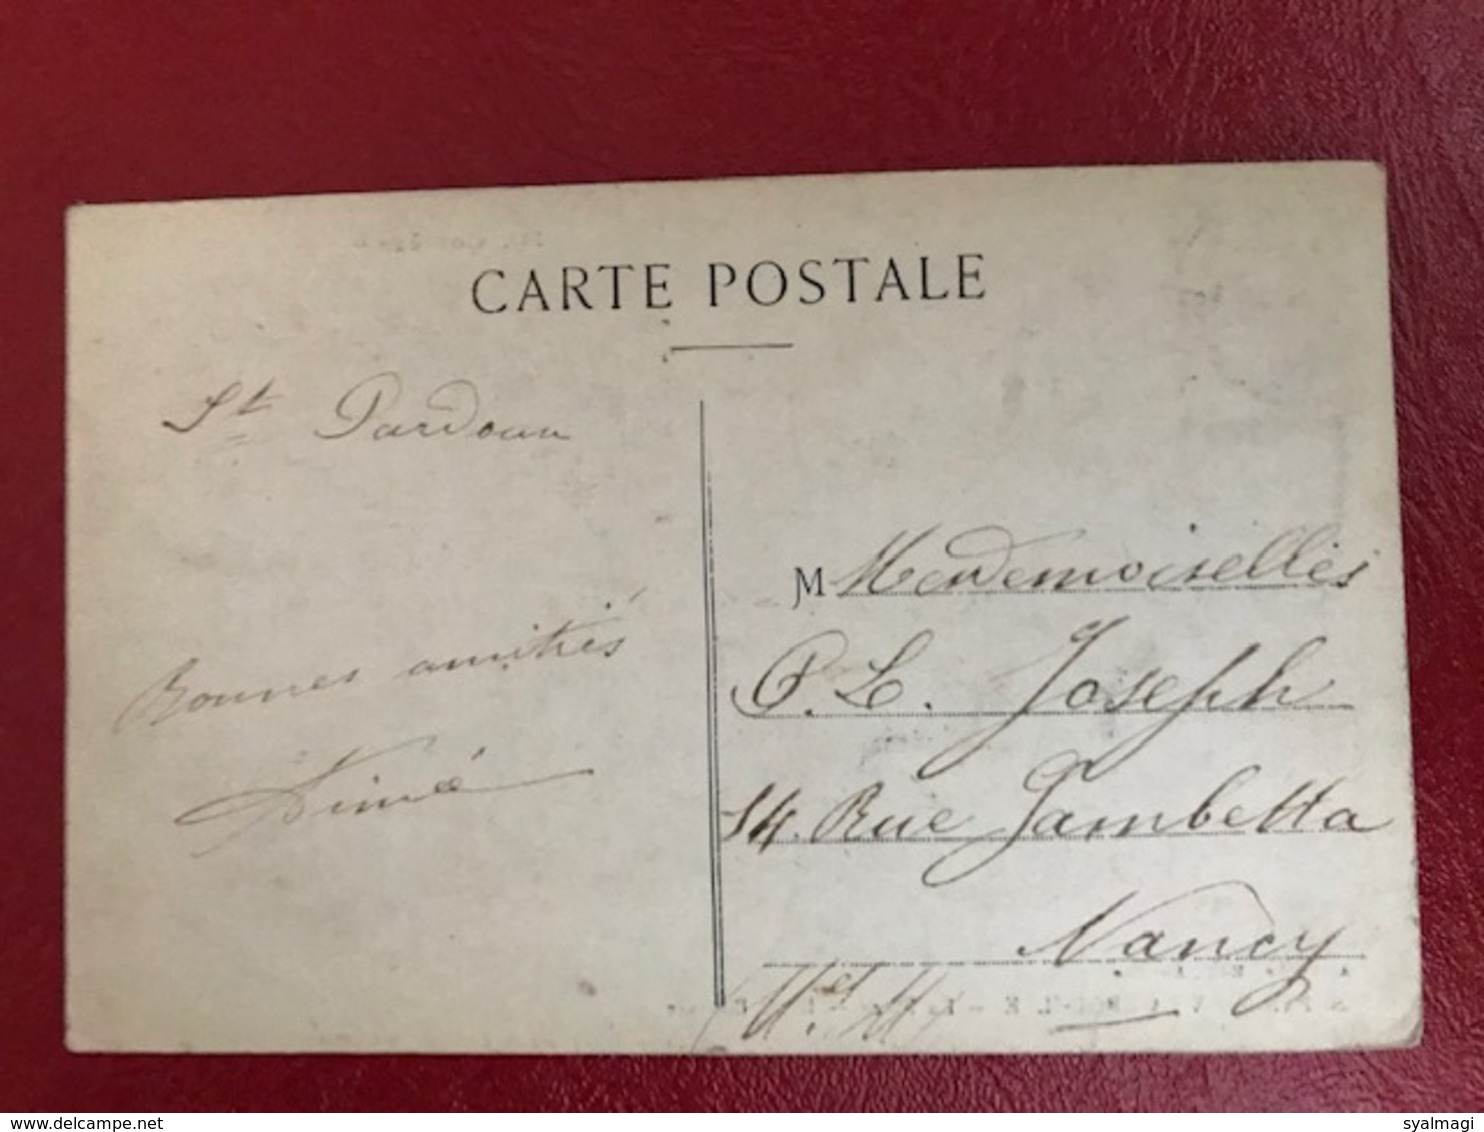 CARTE POSTALE
St Pardoux
Bonnes amitiés
Aimé
M Mesdemoiselles
P. L. Joseph
14. Rue Gambetta
Nancy
Mlle M
delcampe.net
syalmagi